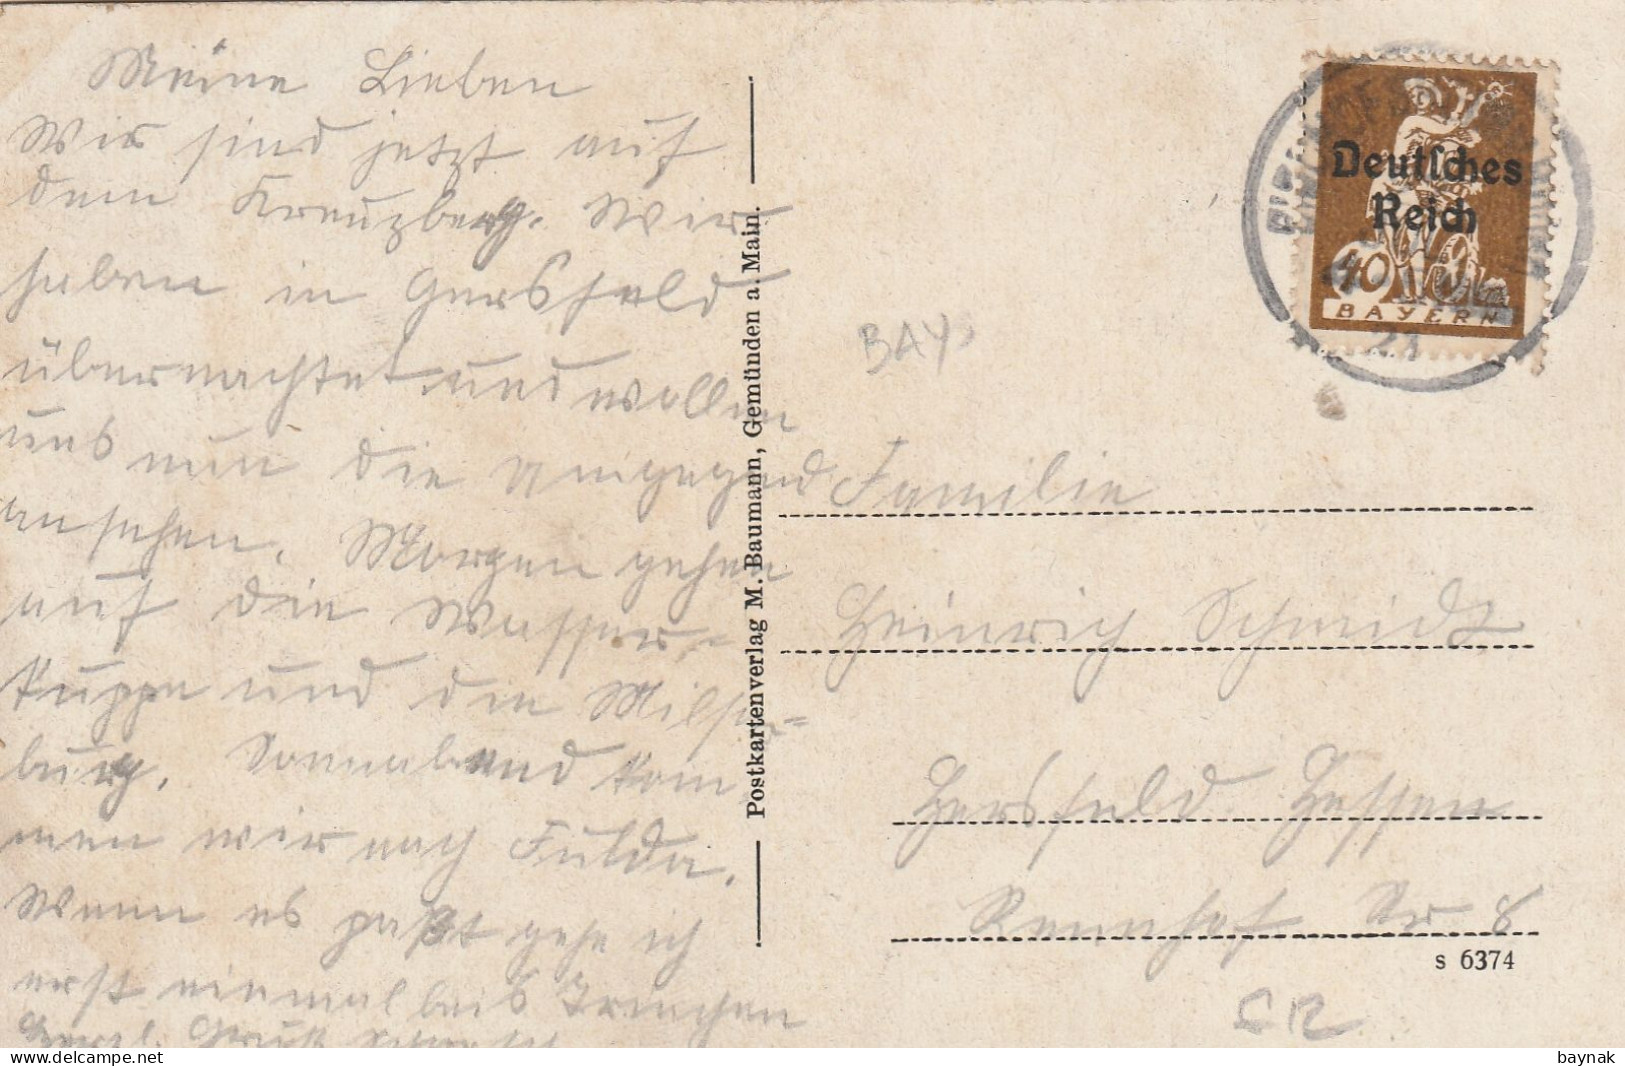 Meine Lieben
Wir sind jetzt auf
dem Kreuzberg. Wir
haben in Gersfeld
übernachtet und wollen
uns nun die Umgegend
ansehen. Morgen gehen
auf die Wasser-
kuppe und die Milse-
burg. Sonnabend kom
men wir nach Fulda.
Wenn es paßt gehe ich
erst einmal bei's Trinchen
Herzl. Gruß
Postkartenverlag M. Baumann, Gemünden a. Main.
Deutsches
Reich
40
BAYERN
21
BAY.
Familie
Heinrich Schmidt
Hersfeld Hessen
Rennhof Nr 8
s 6374
baynak